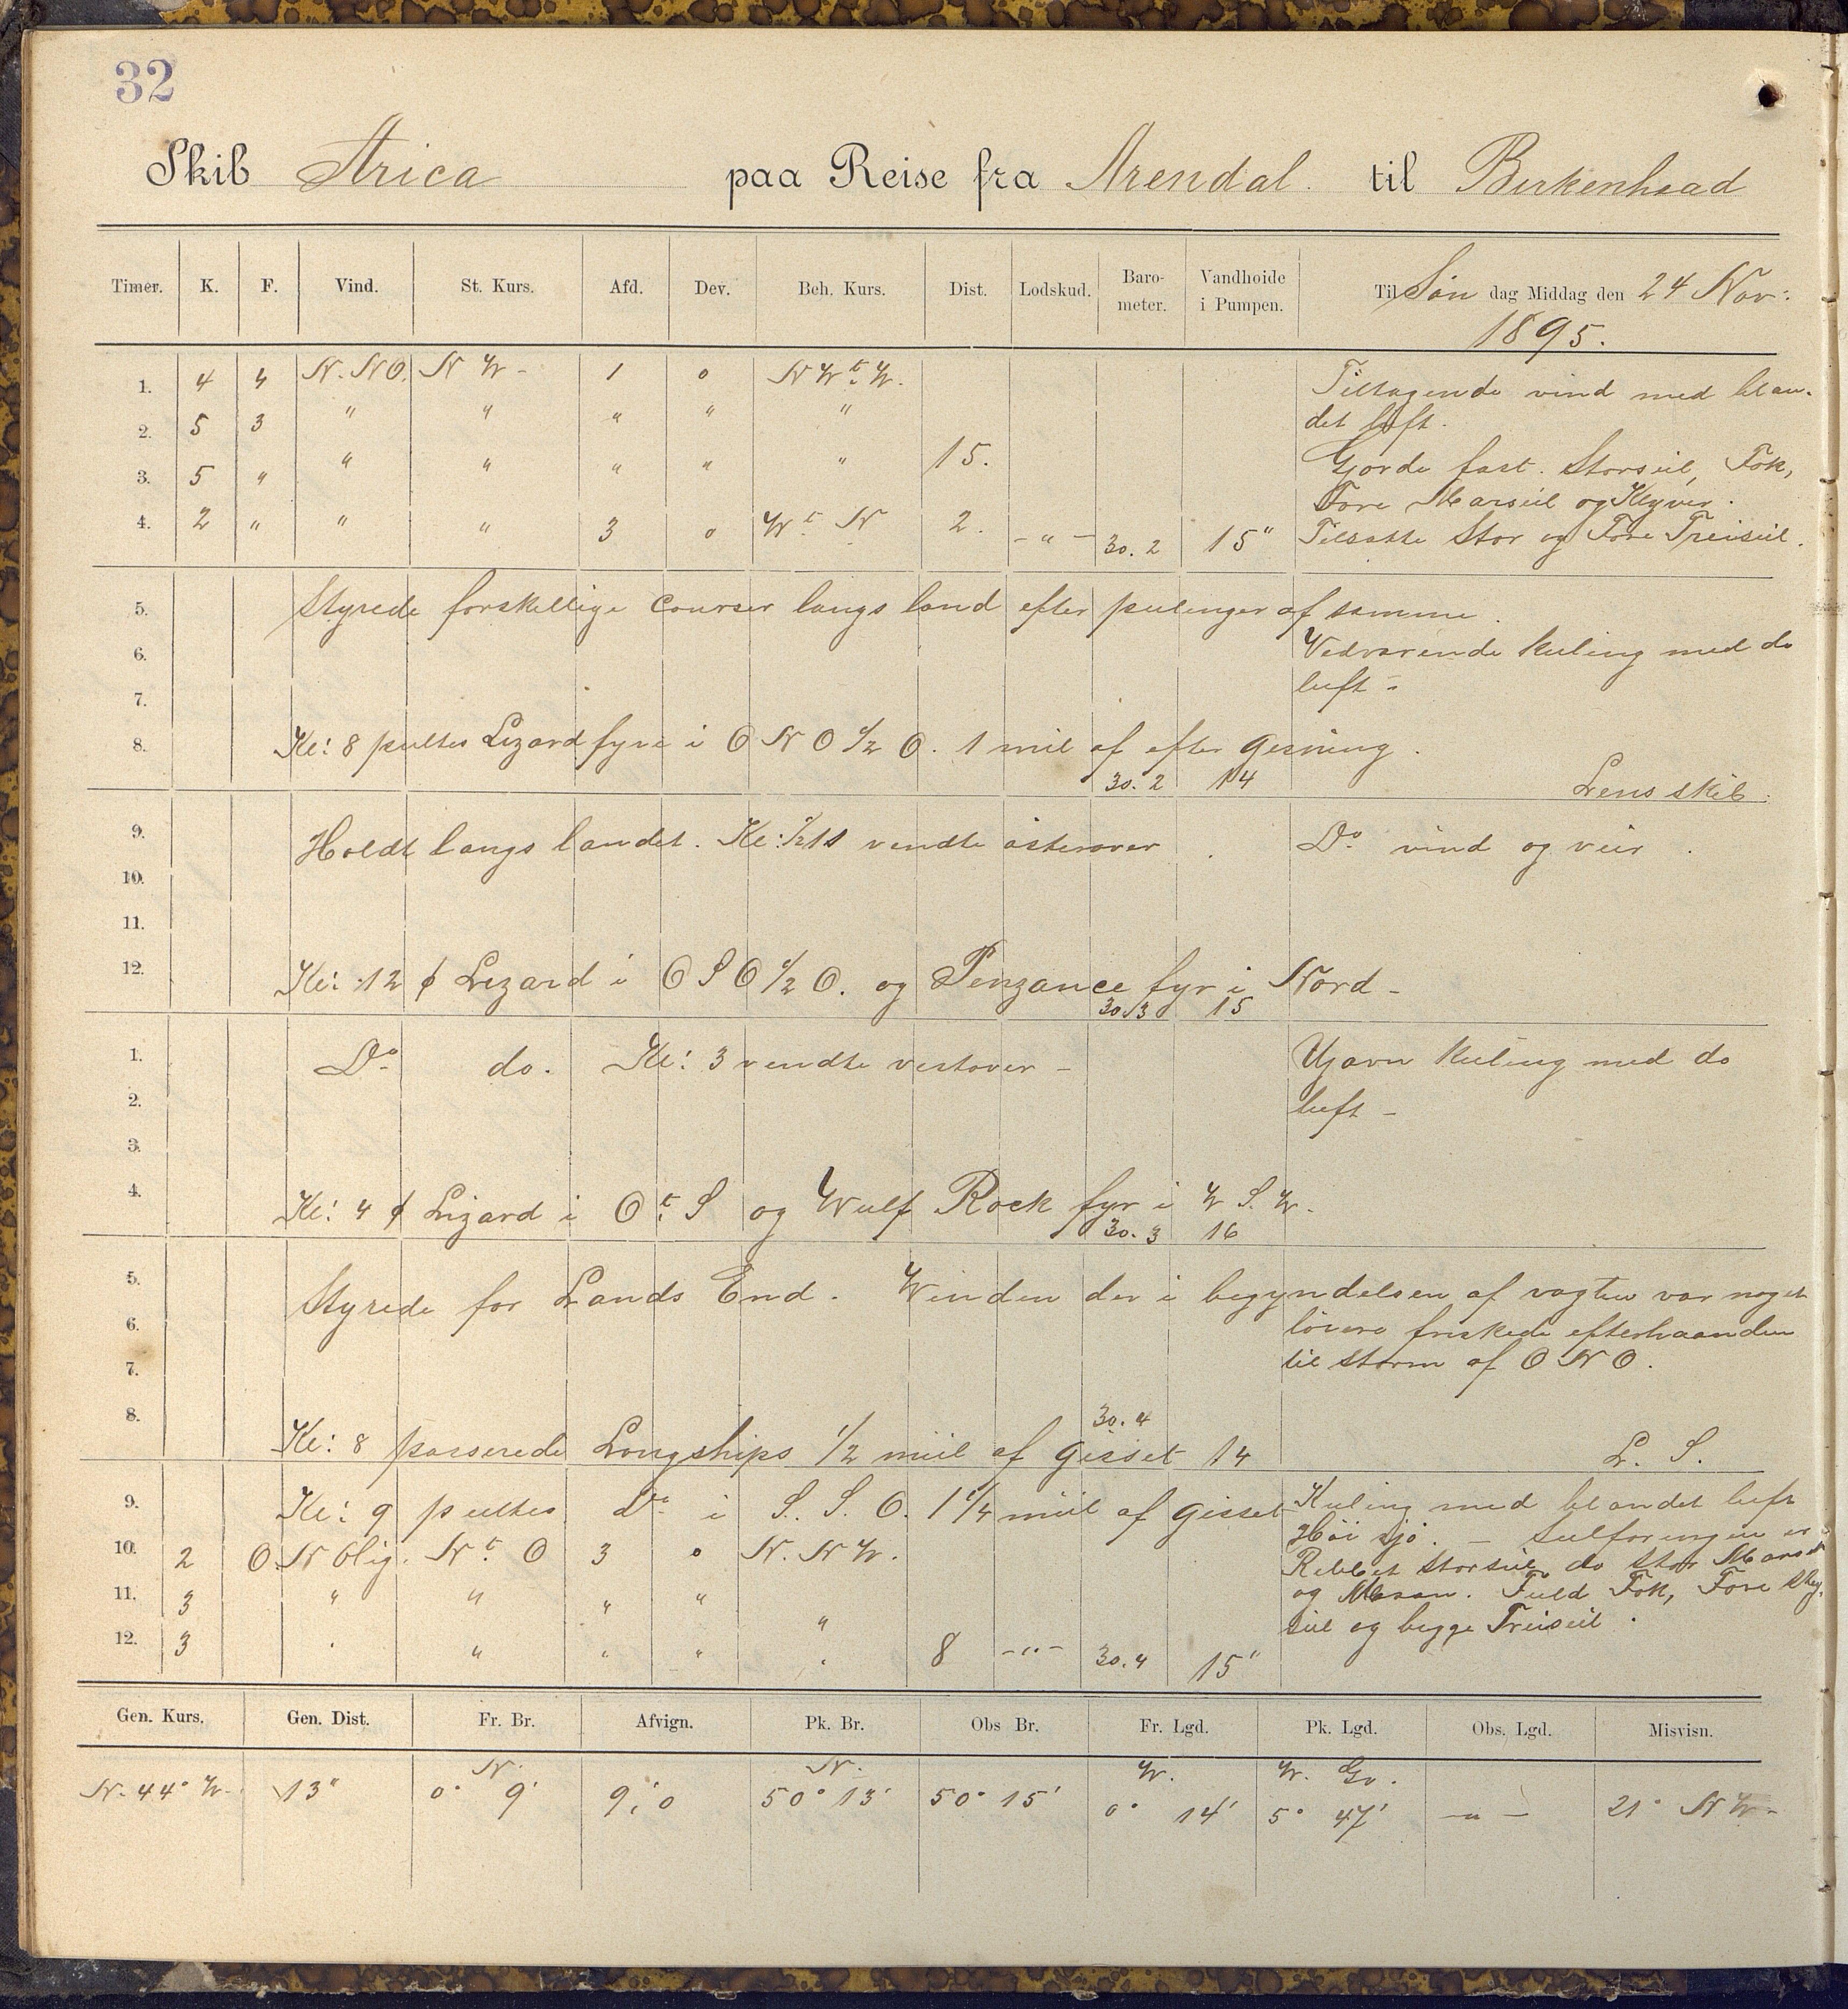 32
Skib Arica paa Reise fra Arendal. til Birkenhead
Timer. K. F. Vind. St. Kurs. Afd. Dev. Beh. Kurs. Dist. Lodskud. Baro-meter. Vandhoide i Pumpen. Til Søn dag Middag den 24 Nov:
1895.
1. 4 4 N. NO. N W - 1 0 N W t. W. Tiltagende vind med blan-
2. 5 3 " " " " " det luft.
3. 5 " " " " " " 15. Gjorde fast. Storseil, Fok,
Fore Marseil og Klyver.
4. 2 " " " 3 0 W t. N 2. - " - 30. 2 15" Tilsatte Stor og Fore Treiseil.
5. Styrede forskellige Courser langs land efter peilinger af samme.
6. Vedvarende kuling med do
7. luft -
8. Kl: 8 peiltes Lizard fyre i O N O 1/2 O. 1 mil af efter gisning.
30. 2 14 Lens skib.
9. Holdt langs landet. Kl: 1/2 11 vendte østerover. Do vind og veir.
10.
11.
12. Kl: 12 ϕ Lizard i O S O 1/2 O. og Penzance fyr i Nord -
30. 3 15
1. Do do. Kl: 3 vendte vestover - Ujavn kuling med do
2. luft -
3.
4. Kl: 4 ϕ Lizard i O t. S og Wulf Rock fyr i W S. W.
30. 3 16
5. Styrede for Lands End. Winden der i begyndelsen af vagten var noget
6. løiere friskede efterhaanden
7. til storm af O N O.
8. 30. 4
Kl: 8 passerede Longships 1/2 miil af gisset 14 L. S.
9. Kl: 9 peiltes Do i S. S. O. 1 1/4 miil af gisset Kuling med blandet luft
Høi sjø. - Seilføringen er
10. 2 O. N Olig. N t. O 3 0 N. N W. Rebbet Storseil, do Stor Marseil
11. 3 " " " " " og Mesan. Fuld Fok, Fore Stag-
seil og begge Treiseil.
12. 3 " " " " " 8 - " - 30. 4 15"
Gen. Kurs. Gen. Dist. Fr. Br. Afvign. Pk. Br. Obs Br. Fr. Lgd. Pk. Lgd. Obs. Lgd. Misvisn.
N. N. W. W. Gr.
N. 44° W. 13" 0° 9' 9,'0 50° 13' 50° 15' 0° 14' 5° 47' - " - 21° N W -